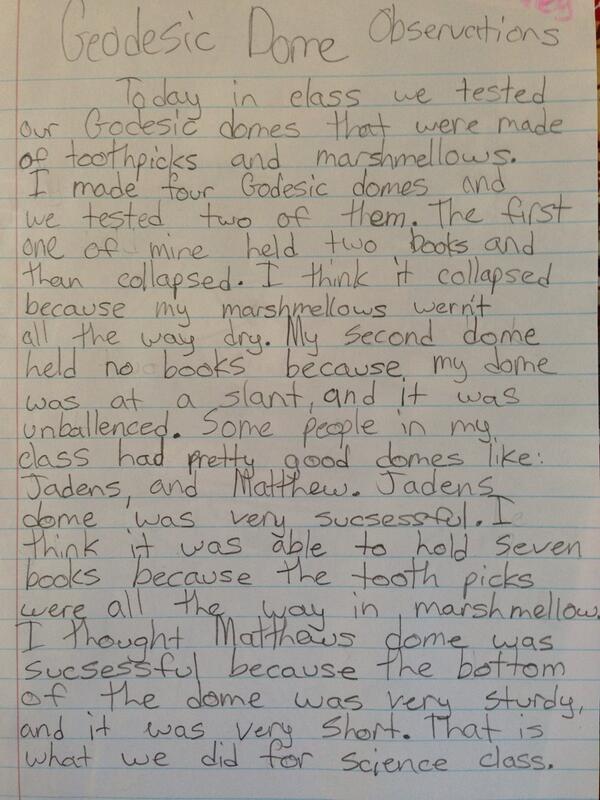 Geodesic Dome Observations
Today in class we tested
our Godesic domes that were made
of toothpicks and marshmellows.
I made four Godesic domes and
we tested two of them. The first
one of mine held two books and
than collapsed. I think it collapsed
because my marshmellows wern't
all the way dry. My second dome
held no books because my dome
was at a slant, and it was
unballenced. Some people in my
class had pretty good domes like:
Jadens, and Matthew. Jadens
dome was very sucsessful. I
think it was able to hold seven
books because the tooth picks
were all the way in marshmellow.
I thought Matthews dome was
sucsessful because the bottom
of the dome was very sturdy,
and it was very short. That is
what we did for science class.